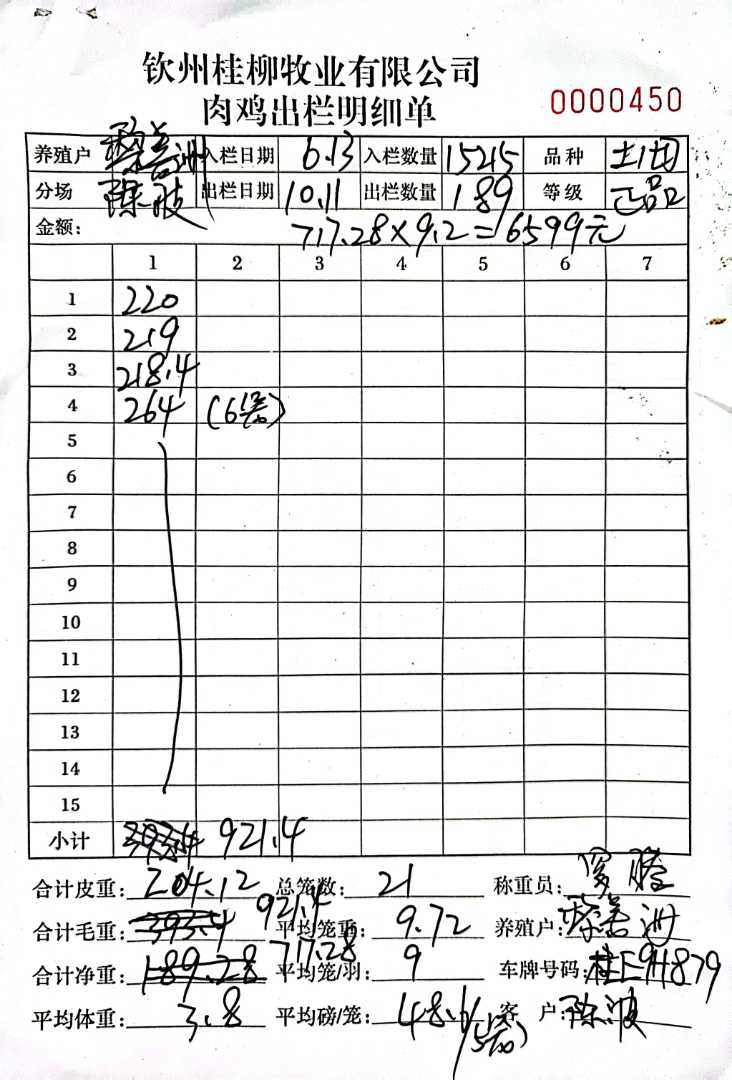 钦州桂柳牧业有限公司
肉鸡出栏明细单
0000450
养殖户 入栏日期 6.13 入栏数量 1525 品种 土
分场 陈波 出栏日期 10.11 出栏数量 189 等级 正品
金额: 717.28×9.2=6599元
1 2 3 4 5 6 7
1 220
2 219
3 218.4
4 264 (6笼)
5
6
7
8
9
10
11
12
13
14
15
小计 921.4
合计皮重: 204.12 总笼数: 21 称重员:
合计毛重: 393.4 921.4 平均笼重: 9.72 养殖户:
合计净重: 189.28 717.28 平均笼/羽: 9 车牌号码: 桂E9H879
平均体重: 3.8 平均磅/笼: 48.6/5笼) 客户: 陈波